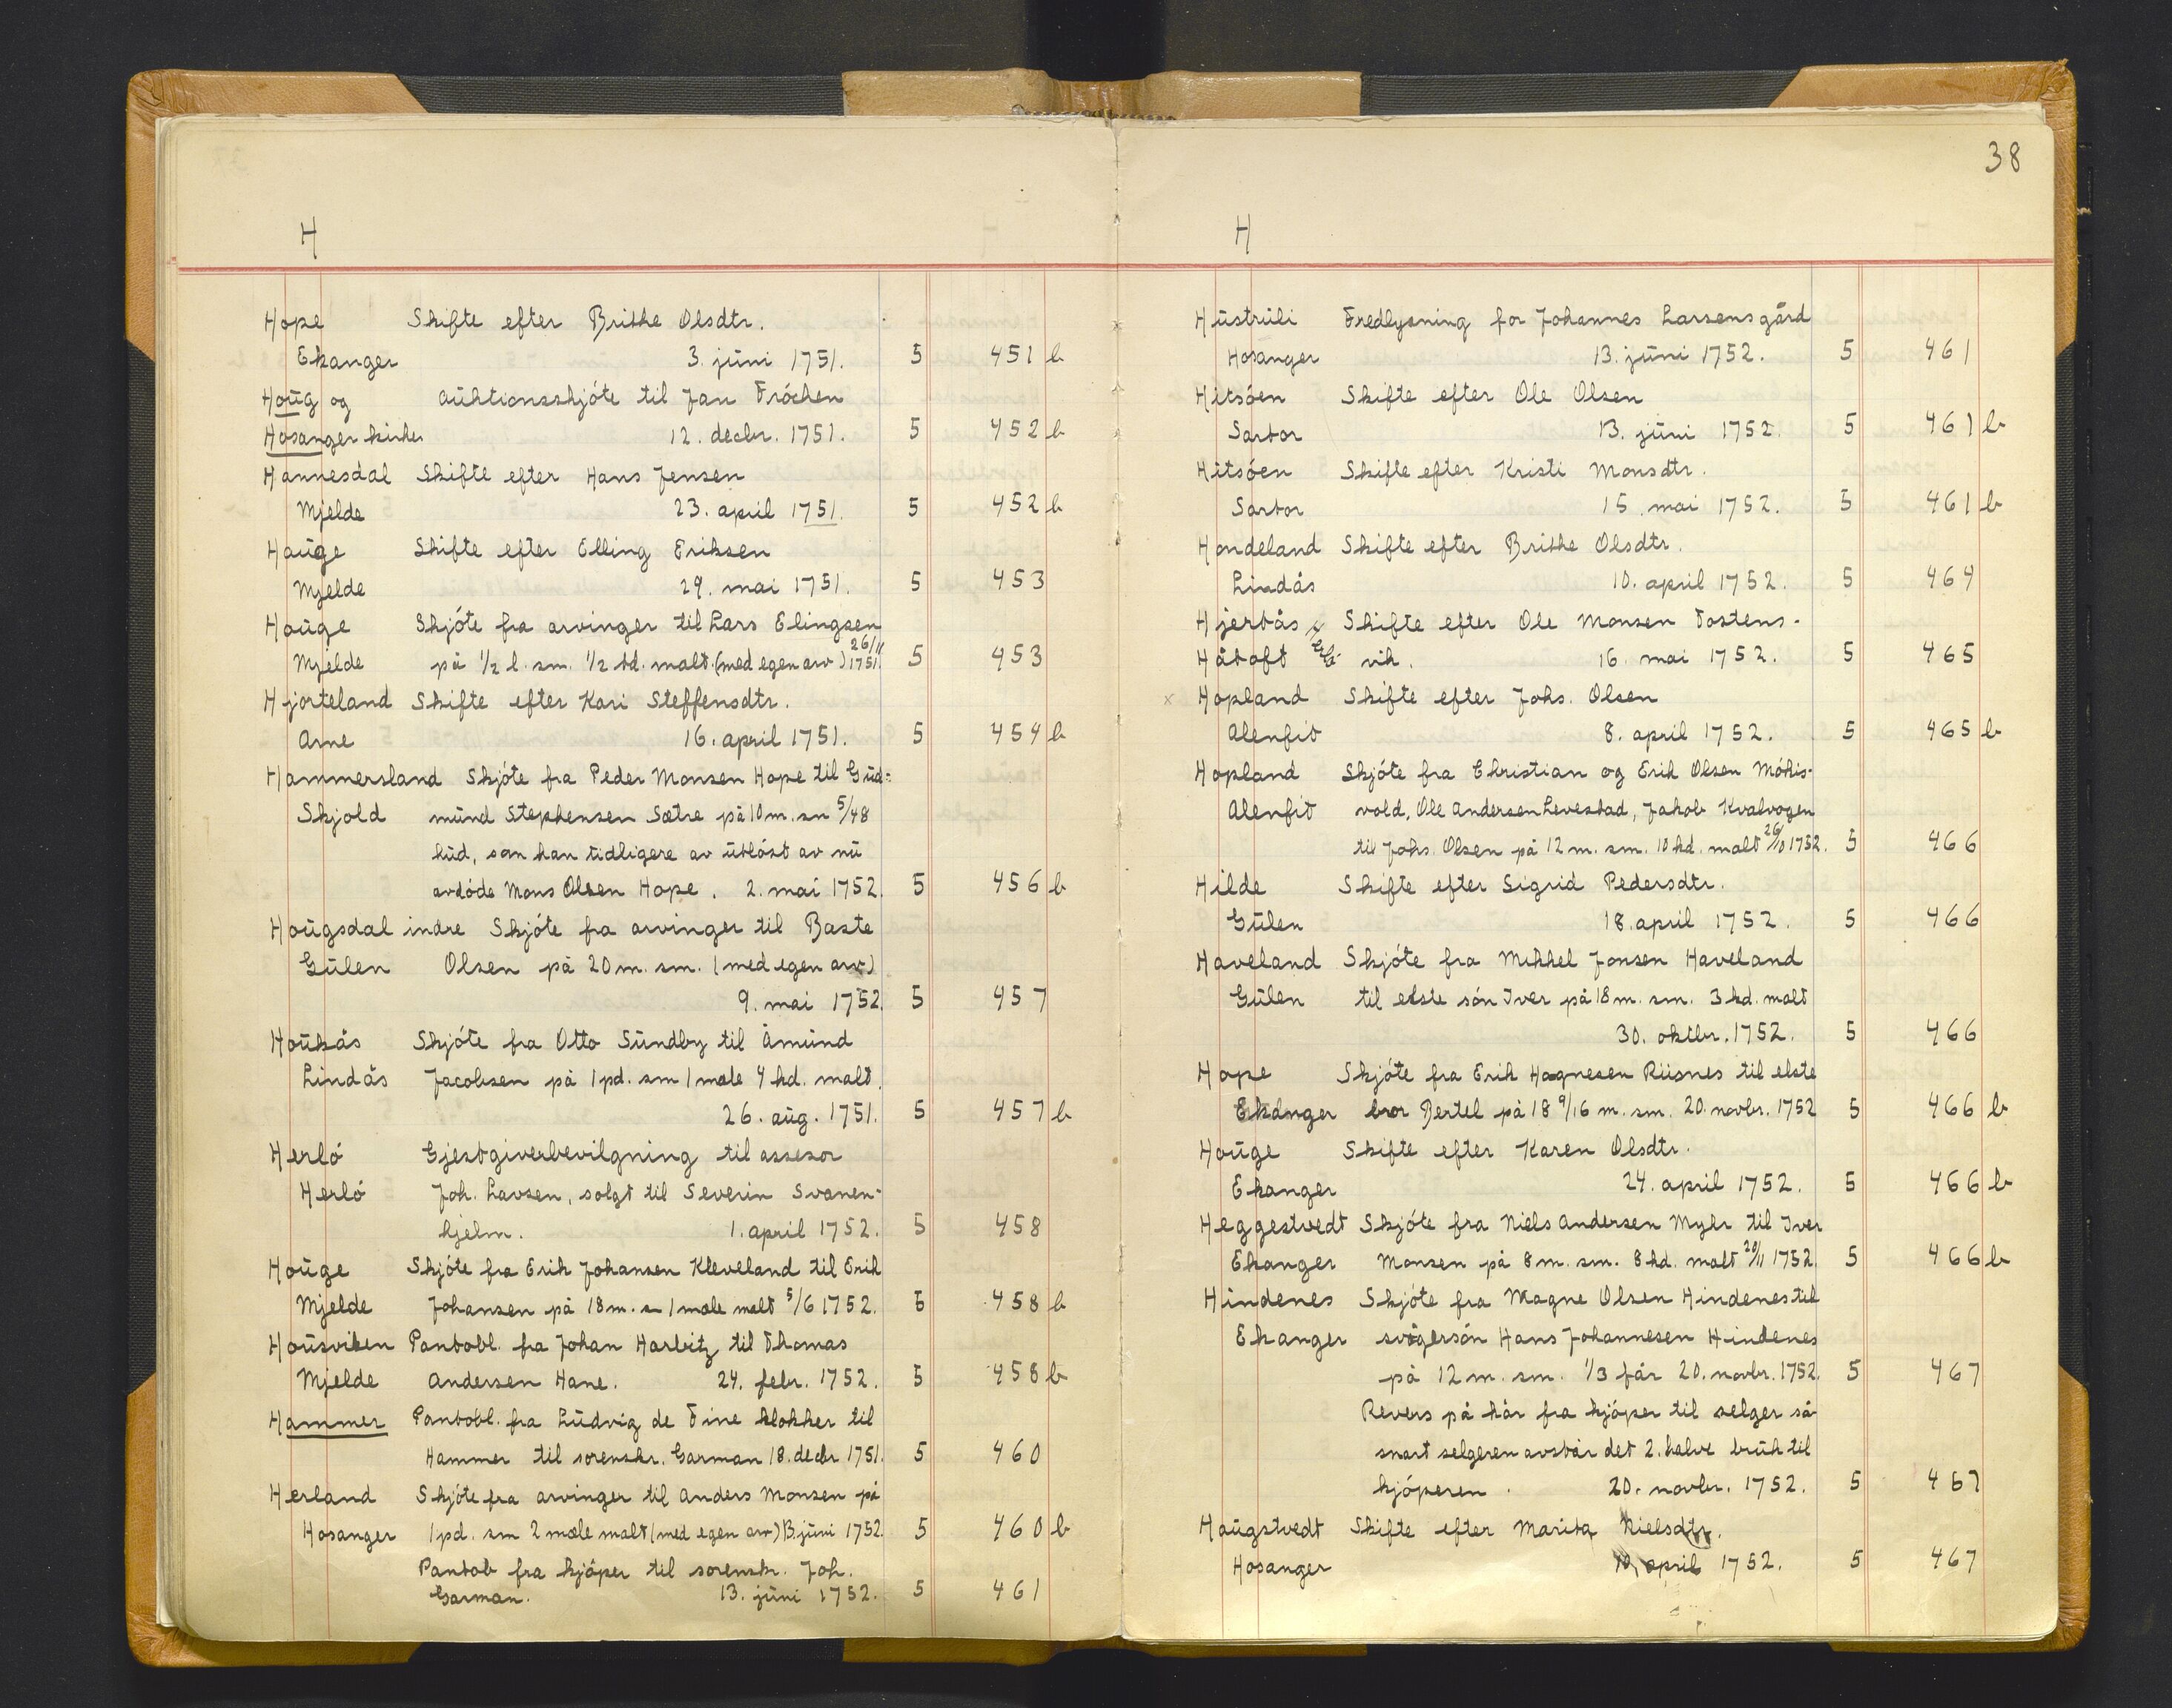 H
Hope Skifte efter Brithe Olsdtr.
Ekanger 3. juni 1751. 5 451 b
Houg og auktionsskjøte til Jan Frøchen
Hosanger kirke 12. decbr. 1751. 5 452 b
Hannesdal Skifte efter Hans Jensen
Mjelde 23. april 1751. 5 452 b
Hauge Skifte efter Elling Eriksen
Mjelde 29. mai 1751. 5 453
Houge Skjøte fra arvinger til Lars Elingsen
Mjelde på 1/2 l. sm. 1/2 td. malt. (med egen arv) 26/11 1751. 5 453
Hjorteland Skifte efter Kari Steffensdtr.
Arne 16. april 1751. 5 454 b
Hammersland Skjøte fra Peder Monsen Hope til Gud=
Skjold mund Stephensen Sætre på 10 m. sm 5/48
hud, som han tidligere av utløst av nu
avdøde Mons Olsen Hope. 2. mai 1752. 5 456 b
Hougsdal indre Skjøte fra arvinger til Baste
Gulen Olsen på 20 m. sm. (med egen arv)
9. mai 1752. 5 457
Houkås Skjøte fra Otto Sundby til Åmund
Lindås Jacobsen på 1 pd. sm 1 mæle 4 kd. malt.
26. aug. 1751. 5 457 b
Herlø Gjestgiverbevilgning til assesor
Herlø Joh. Lavsen, solgt til Severin Svanen-
hjelm. 1. april 1752. 5 458
Houge Skjøte fra Erik Johansen Kleveland til Erik
Mjelde Johansen på 18 m. sm 1 mæle malt 5/6 1752. 5 458 b
Housviken Pantobl. fra Johan Harbitz til Thomas
Mjelde Andersen Hane. 24. febr. 1752. 5 458 b
Hammer Pantobl. fra Ludvig de Fine klokker til
Hammer til sorenskr. Garman 18. decbr 1751. 5 460
Herland Skjøte fra arvinger til Anders Monsen på
Hosanger 1 pd. sm 2 mæle malt (med egen arv) 13. juni 1752. 5 460 b
Pantob fra kjøper til sorenskr. Joh.
Garman. 13. juni 1752. 5 461
38
H
Hustruli Fredlysning for Johannes Larsens gård
Hosanger 13. juni 1752. 5 461
Hitsøen Skifte efter Ole Olsen
Sartor 13. juni 1752. 5 461 b
Hitsøen Skifte efter Kristi Monsdtr.
Sartor 15. mai 1752. 5 461 b
Hondeland Skifte efter Brithe Olsdtr.
Lindås 10. april 1752. 5 464
Hjertås Skifte efter Ole Monsen Fostens-
Håtoft vik. 16. mai 1752. 5 465
x Hopland Skifte efter Johs. Olsen
Alenfit 8. april 1752. 5 465 b
Hopland Skjøte fra Christian og Erik Olsen Møkis-
Alenfit vold, Ole Andersen Levestad, Jakob Kvalvogen
til Johs. Olsen på 12 m. sm. 10 kd. malt 26/10 1752. 5 466
Hilde Skifte efter Sigrid Pedersdtr.
Gulen 18. april 1752. 5 466
Haveland Skjøte fra Mikkel Jonsen Haveland
Gulen til elste søn Iver på 18 m. sm. 3 kd. malt
30. oktbr. 1752. 5 466
Hope Skjøte fra Erik Hagnesen Riisnes til elste
Ekanger bror Bertel på 18 9/16 m. sm. 20. novbr. 1752 5 466 b
Houge Skifte efter Karen Olsdtr.
Ekanger 24. april 1752. 5 466 b
Heggestvedt Skjøte fra Niels Andersen Myhr til Iver
Ekanger Monsen på 8 m. sm. 8 kd. malt 20/11 1752. 5 466 b
Hindenes Skjøte fra Magne Olsen Hindenes til
Ekanger svogersøn Hans Johannesen Hindenes
på 12 m. sm. 1/3 får 20. novbr. 1752. 5 467
Revers på kår fra kjøper til selger så
snart selgeren avstår det 2. halve bruk til
kjøperen. 20. novbr. 1752. 5 467
Haugstvedt Skifte efter Marita Nielsdtr.
Hosanger 10. april 1752. 5 467